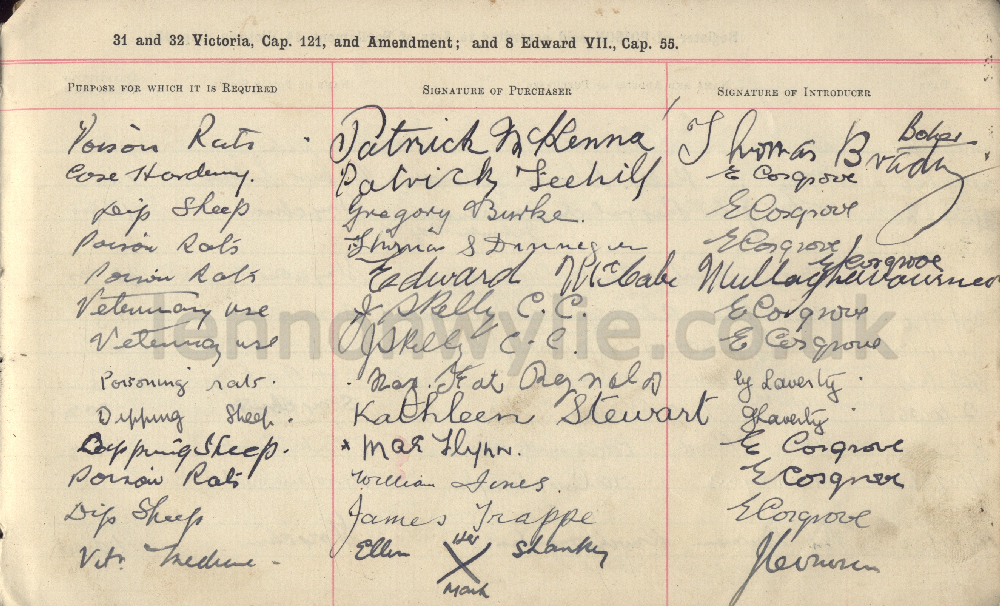 31 and 32 Victoria, Cap. 121, and Amendment; and 8 Edward VII., Cap. 55.
Purpose for which it is Required Signature of Purchaser Signature of Introducer
Poison Rats Patrick McKenna Thomas Brady
E Cosgrove
Patrick Feehill
Dip Sheep Gregory Burke. E Cosgrove
Poison Rats Thomas S E Cosgrove
E Cosgrove
Poison Rats Edward McCabe
Veterinary use J Skelly C.C. E Cosgrove
Veterinary use J Skelly C.C. E Cosgrove
Poisoning rats. Laverty
Dipping Sheep. Kathleen Stewart Laverty
Dipping Sheep. x Mas Flynn. E Cosgrove
Poison Rats William Jines. E Cosgrove
Dip Sheep James Trappe E Cosgrove
Vet. Medicine - Ellen her X mark Shankey
lennonwylie.co.uk